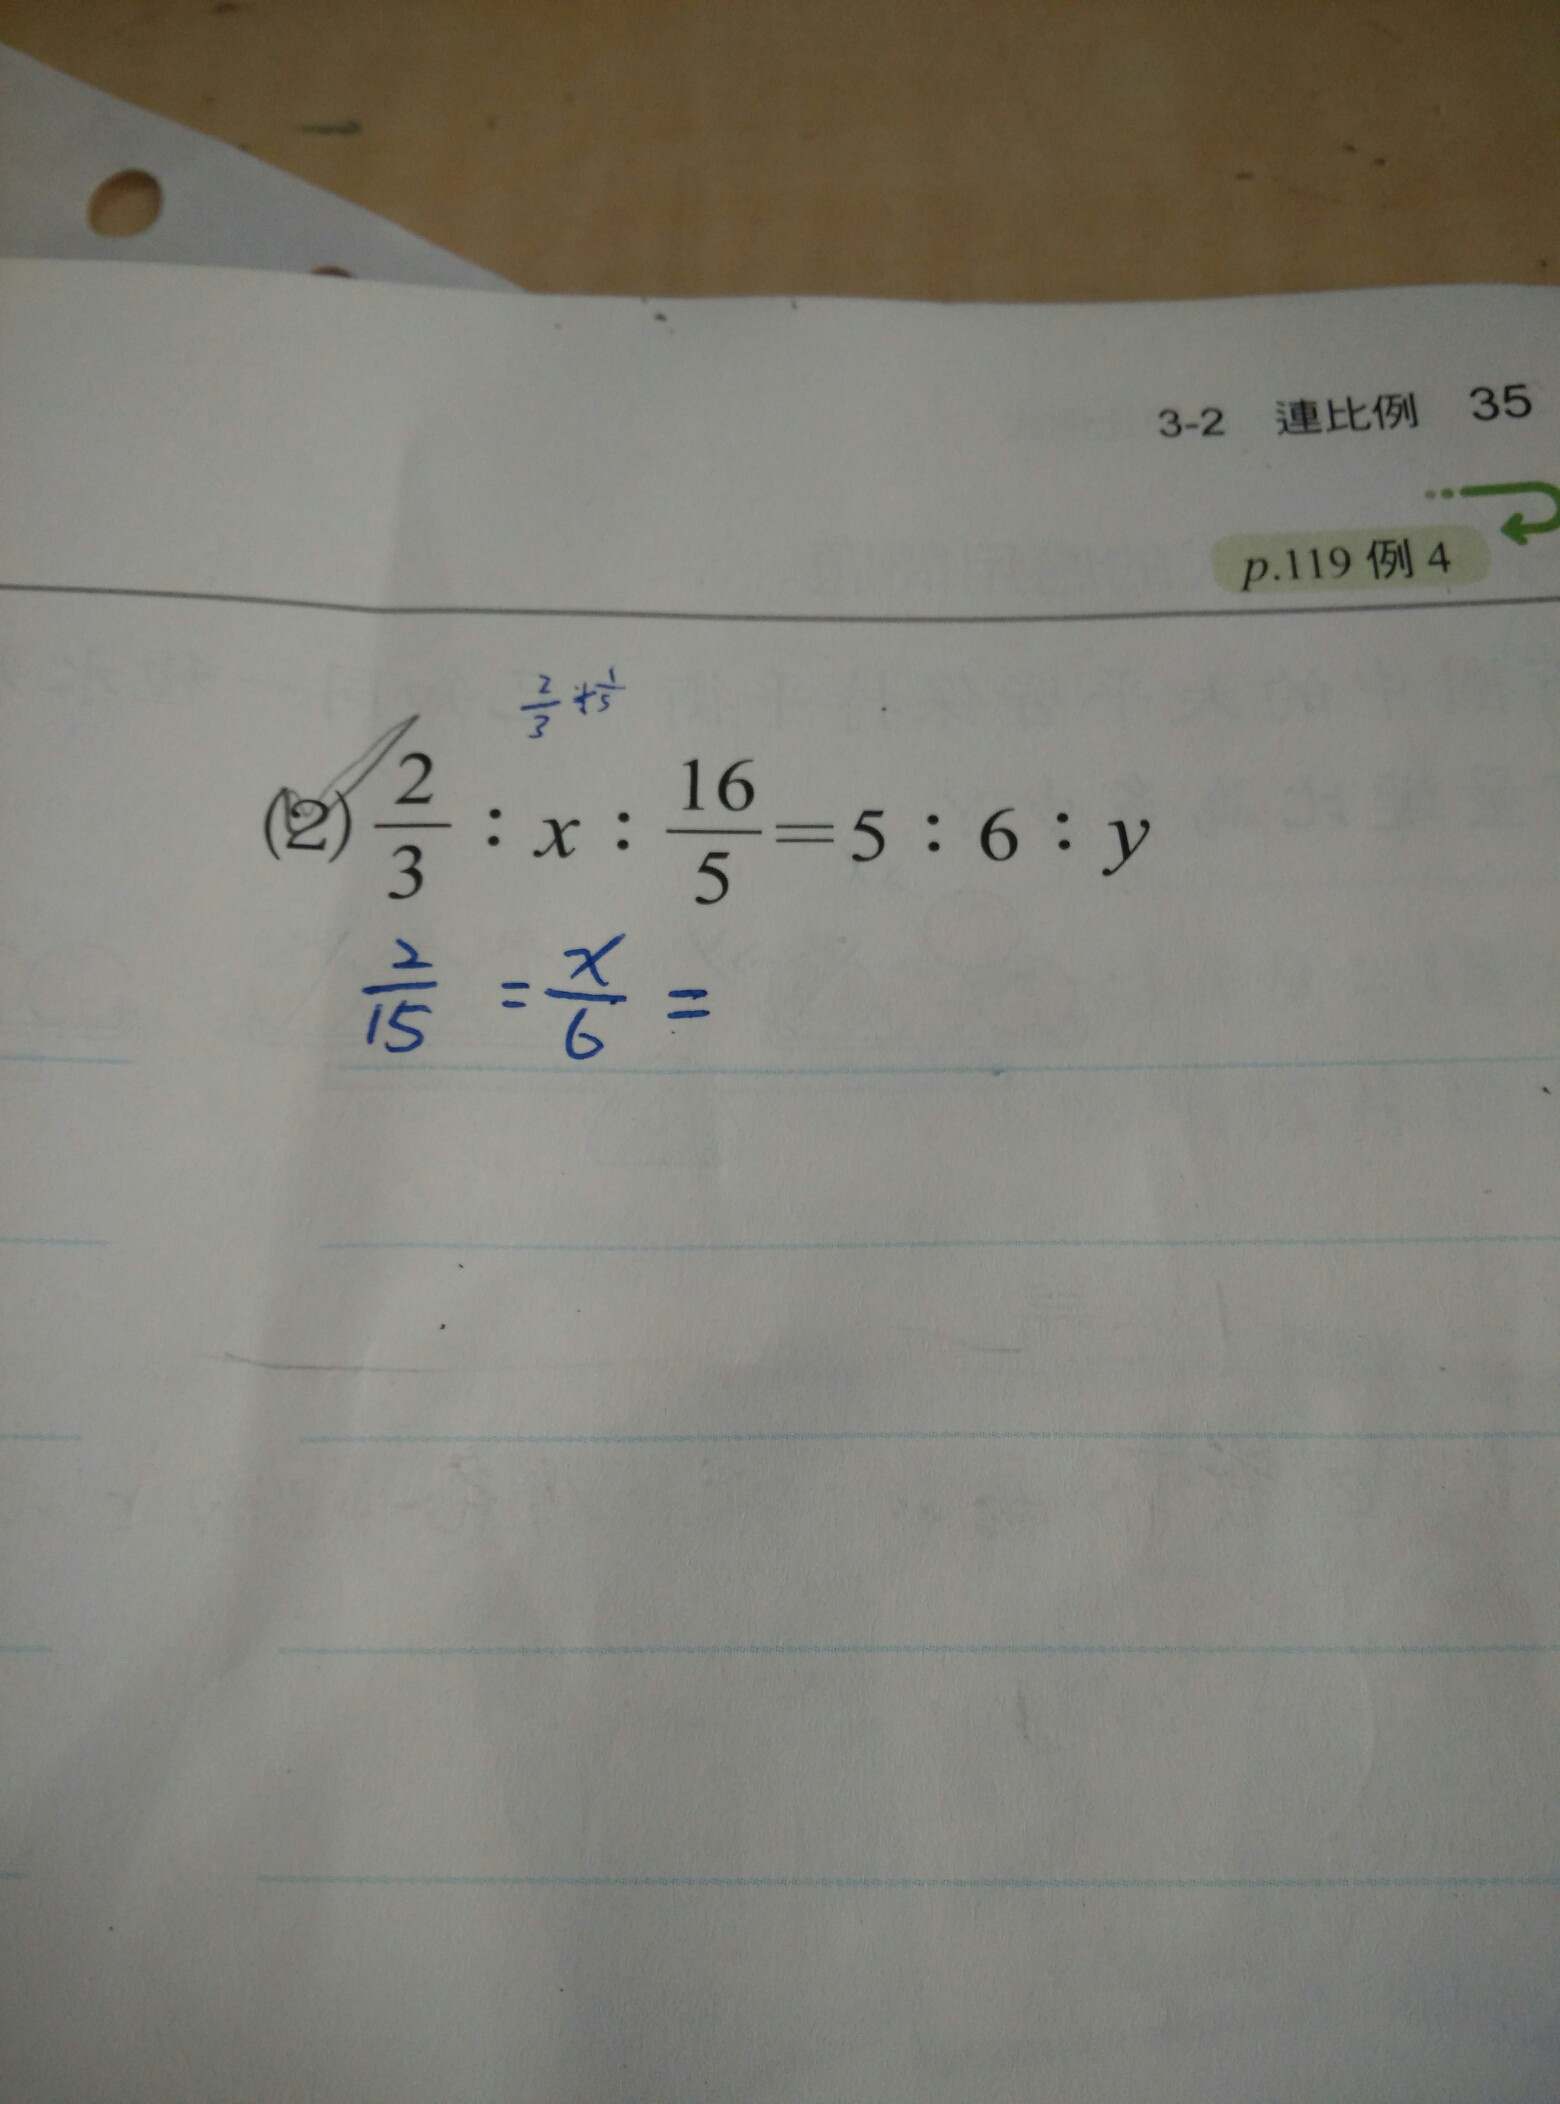 3-2 連比例 35
p.119 例 4
2/3 ÷ 1/5
(2) 2/3 : x : 16/5 = 5 : 6 : y
2/15 = x/6 =